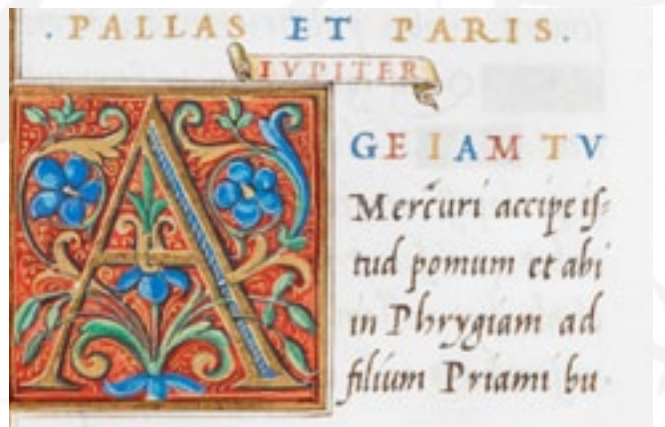 . PALLAS ET PARIS.
IVPITER
AGE IAM TV
Mercuri accipe is-
tud pomum et abi
in Phrygiam ad
filium Priami bu